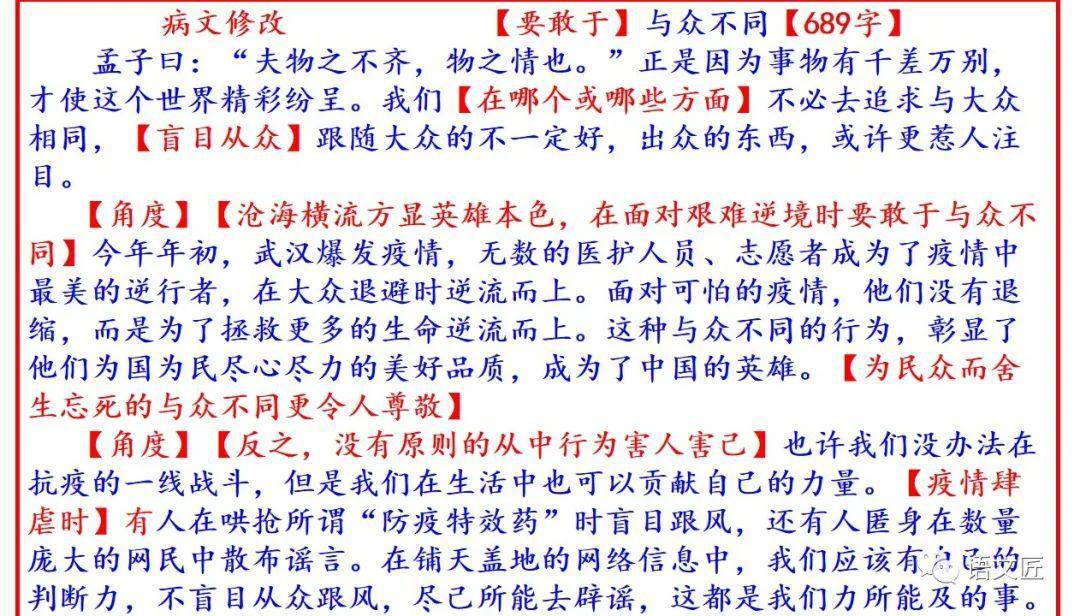 病文修改 【要敢于】与众不同【689字】
孟子曰：“夫物之不齐，物之情也。”正是因为事物有千差万别，
才使这个世界精彩纷呈。我们【在哪个或哪些方面】不必去追求与大众
相同，【盲目从众】跟随大众的不一定好，出众的东西，或许更惹人注
目。
【角度】【沧海横流方显英雄本色，在面对艰难逆境时要敢于与众不
同】今年年初，武汉爆发疫情，无数的医护人员、志愿者成为了疫情中
最美的逆行者，在大众退避时逆流而上。面对可怕的疫情，他们没有退
缩，而是为了拯救更多的生命逆流而上。这种与众不同的行为，彰显了
他们为国为民尽心尽力的美好品质，成为了中国的英雄。【为民众而舍
生忘死的与众不同更令人尊敬】
【角度】【反之，没有原则的从中行为害人害己】也许我们没办法在
抗疫的一线战斗，但是我们在生活中也可以贡献自己的力量。【疫情肆
虐时】有人在哄抢所谓“防疫特效药”时盲目跟风，还有人匿身在数量
庞大的网民中散布谣言。在铺天盖地的网络信息中，我们应该有自己的
判断力，不盲目从众跟风，尽己所能去辟谣，这都是我们力所能及的事。
语文匠